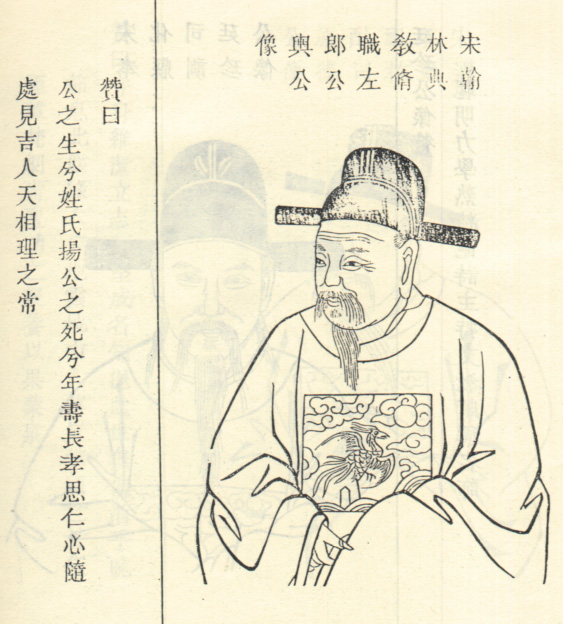 宋翰
林典
教脩
職左
郎公
與公
像
贊曰
公之生兮姓氏揚公之死兮年壽長孝思仁心隨
處見吉人天相理之常